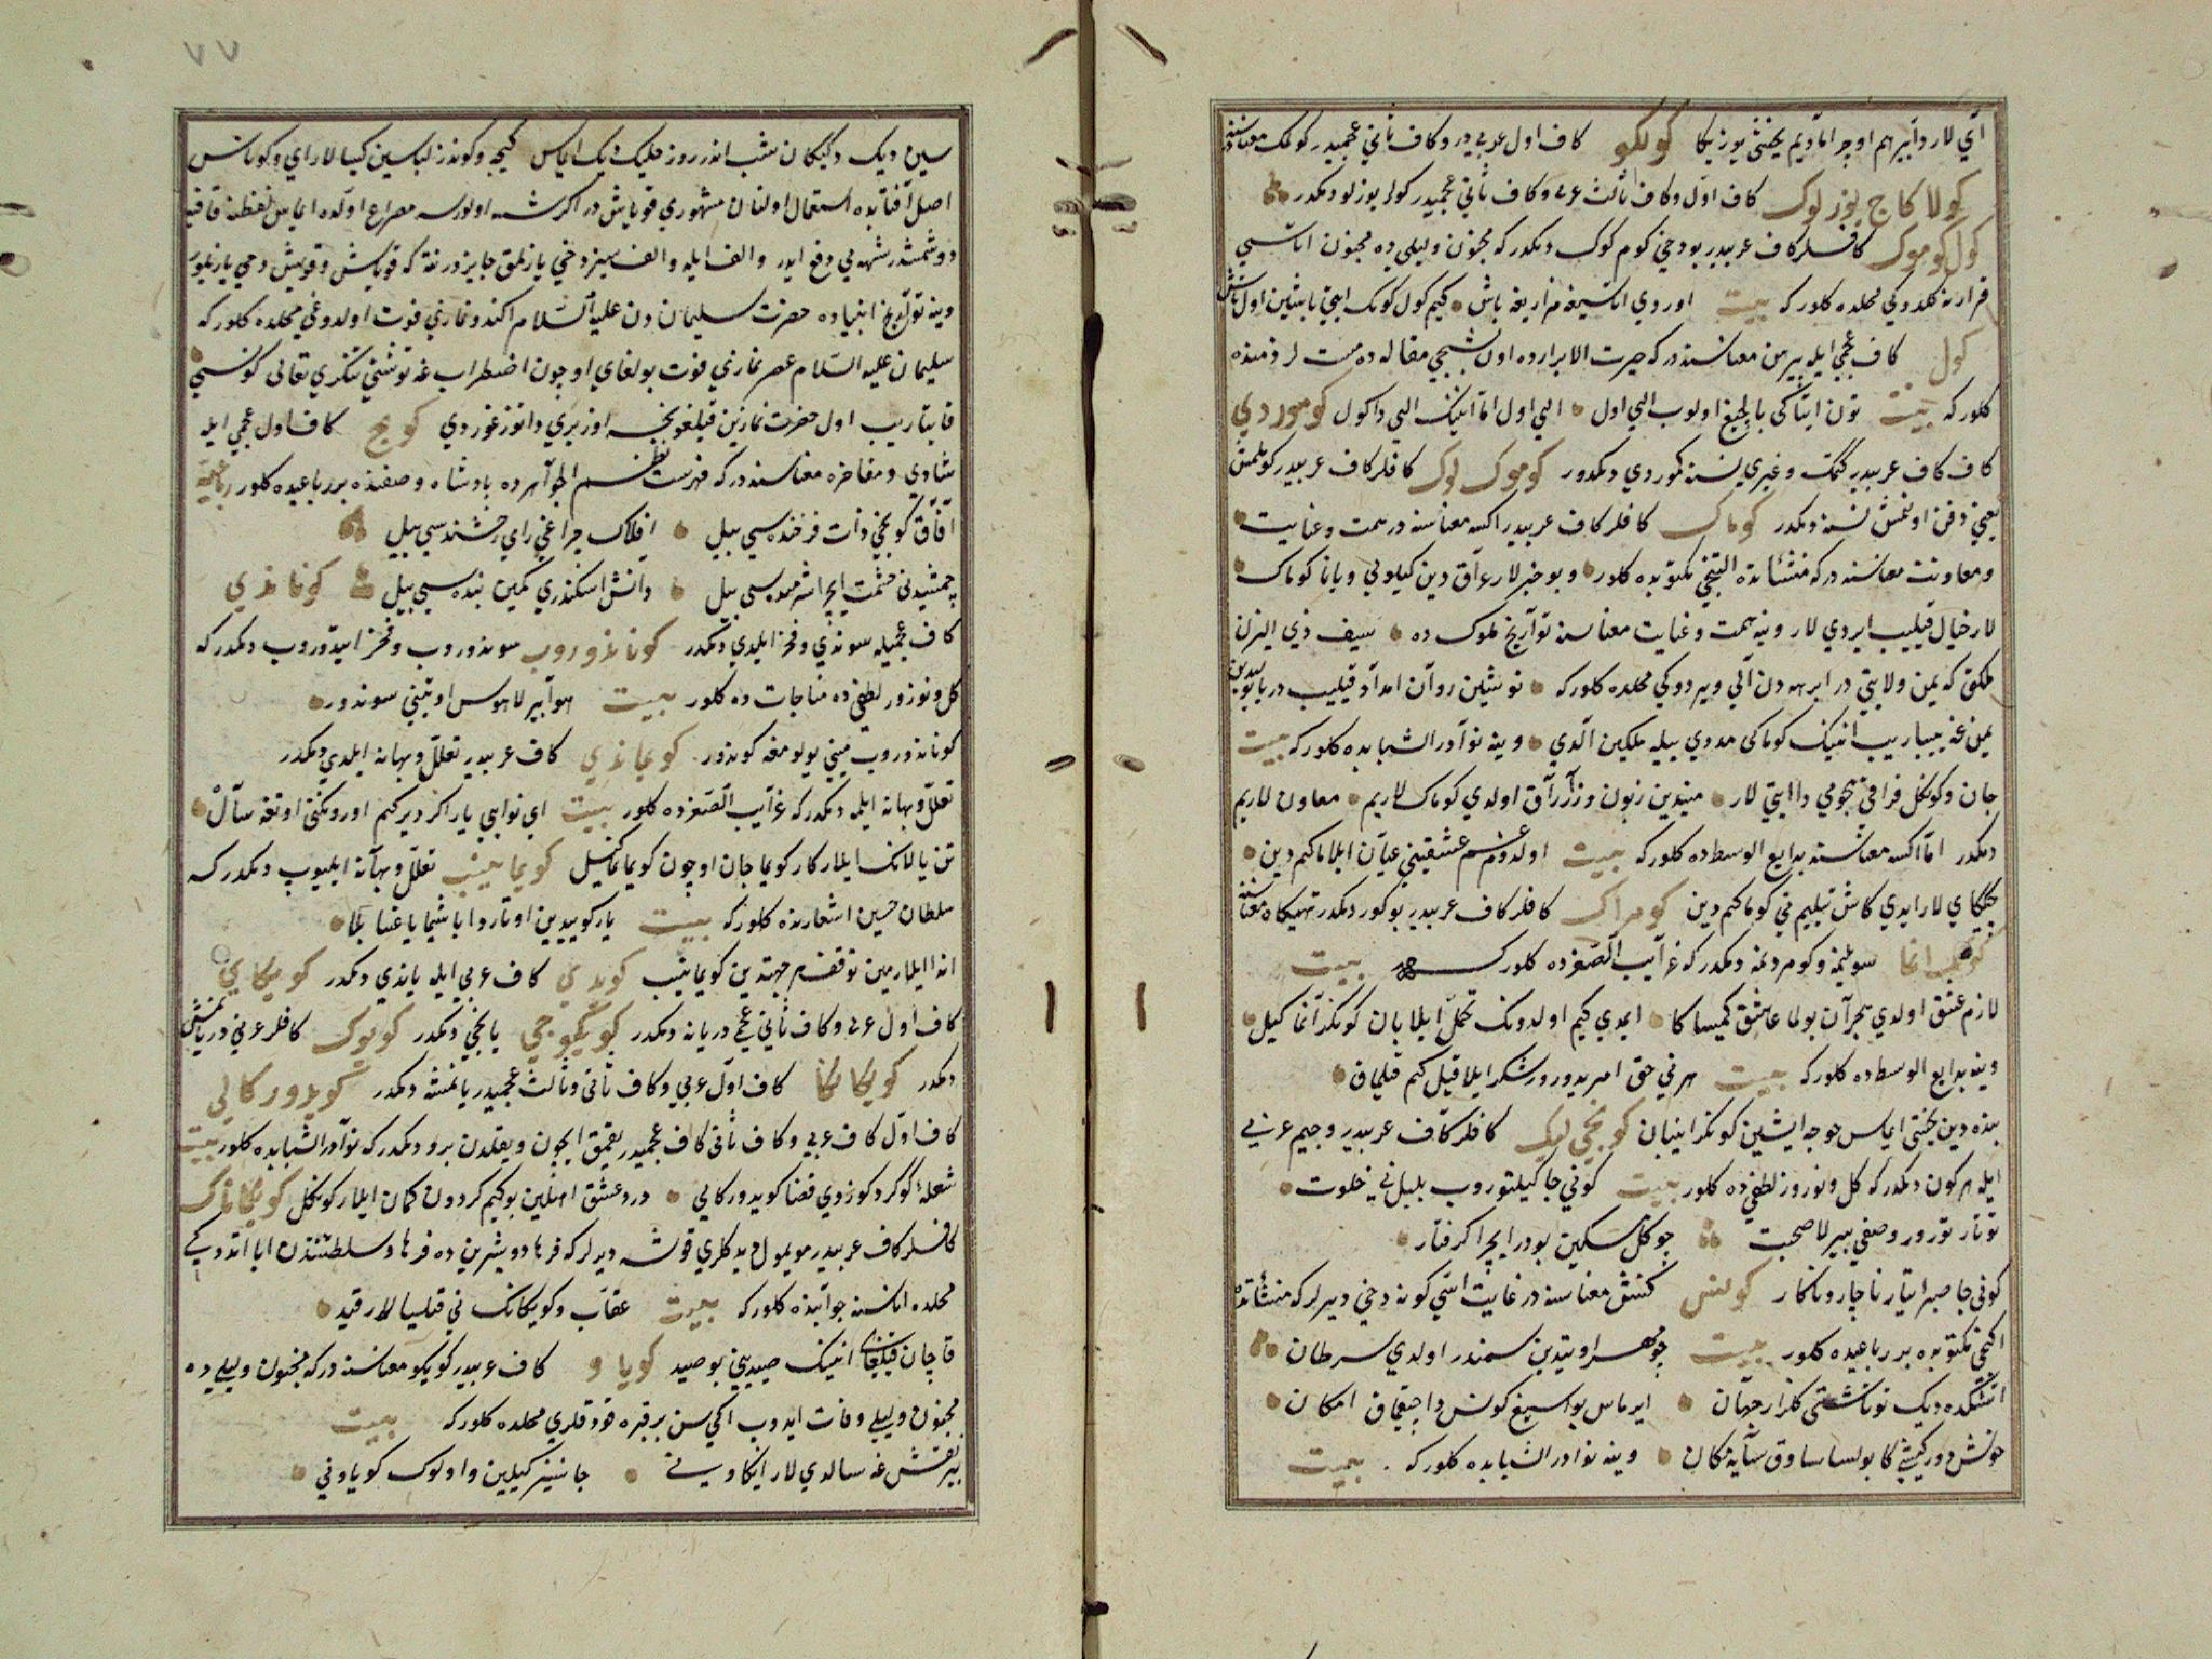 آي لار دآبير هم اوچراماديم يخشي يوزيكا كولكو كاف اول عربي در وكاف ثاني عجميدر كولمك معناسنه در
كولاكاج يوزلوك كاف اول وكاف ثالث عربي وكاف ثاني عجميدر كولر يوزلو ديمكدر
كول كوموك كافلر كاف عربيدر بو دخي كوم كوك ديمكدر كه مجنون وليلي ده مجنون اتاسي
قرارنه كلدوكي محلده كلور كه بيت اوردي اتاسيغه مزاريغه باش كيم كول كوك ايتي تاشين اول تاش
كول كاف عجمي ايله بيرمن معناسنه در كه حيرت الابرارده اون بشنجي مقاله ده مست لر ذمنده
كلور كه بيت تون ايتاكي باليغ اولوب اليي اول اليي اول اما انينك اليي داكول كوموردي
كاف كاف عربيدر كمك وغيري نسنه كموردي ديمكدور كوموك لوك كافلر كاف عربيدر كوملمش
يعني دفن اولنمش نسنه ديمكدر كوماك كافلر كاف عربيدر اكسه معناسنه در همت وعنايت
ومعاونت معناسنه در كه منشئاتده التنجي مكتوبده كلور وبو خبرلار عراق دين كيلوني ويانا كوماك
لار خيال قيليب ايردي لار وينه همت وعنايت معناسنه تواريخ ملوك ده سيف ذي اليزن
ملكتي كه يمن ولايتي در ابرهه دن آلي ويردوكي محلده كلور كه نوشين روان امداد قيليب دريا يوليدين
يمن غه يباريب انينك كوماكي مددي بيله ملكين آلدي وينه نوادر الشبابده كلور كه بيت
جان وكونكل فراقي هجومي دا ايتي لار ميندين زبون وزارراق اولدي كوماك لاريم معاون لاريم
ديمكدر اما اكسه معناسنه بدايع الوسطده كلور كه بيت اولدوم هم عشقيني عيان ايلاماكيم دين
چيكاي لار ايدي كاش تيليم ني كوماكيم دين كومراك كافلر كاف عربيدر بوكور ديمكدر تهيكاه معناسنه
سويلمه وكومردنمه ديمكدر كه غرايب الصغرده كلور كه بيت
لازم عشق اولدي هجران بولما عاشق كيمساكا ايمدي كيم اولدونك تحمل ايلابان كونكرانما كيل
وينه بدايع الوسطده كلور كه بيت هر ني حق امريدورور شكر ايلا قيل كيم قيلماق
بنده دين يخشي ايماس خوجه ايشين كونكرانيبان كونجي ليك كافلر كاف عربيدر وجيم عربي
ايله هر كون ديمكدر كه كل ونوروز لطفي ده كلور بيت كوني جا كيلتوروب بلبل ني خلوت
توتار تورور وصفي بيرلا صحبت چو كل مسكين بودر ايجرا كرفتار
كوني جا صبر ايتار ناچار وناكار كونس كنش معناسنه در غايت اسي كونه دخي ديرلر كه منشئاتده
اكنجي مكتوبده بر رباعيده كلور بيت چو مهر اوتيدين سمندر اولدي سرطان
اتشكده ديك توتاشتي كلزار جهان ايرماس بو اسيغ كونس دا چيقماق امكان
خوش دور كيشي كا بولسا ساوق سايه مكان وينه نوادر الشبابده كلور كه بيت
سين ديك دكيكان شب اندر روز ميليك ديك ايماس كيچه وكوندز لباسين كيسالار اي وكوناس
اصل آفتابده استعمال اولنان مشهوري قوياش در اكر شبهه اولورسه مصراع اولده ايماس لفظنه قافيه
دوشمشدر شبهه يي دفع ايدر والف ايله والف سيز دخي يازلمق جايزدر نته كه قوياش وقويش دخي يازيلور
وينه تواريخ انبياده حضرت سليمان دن عليه السلام اكندو نمازي فوت اولدوغي محلده كلور كه
سليمان عليه السلام عصر نمازي فوت بولغاي اوچون اضطراب غه توشتي تنكري تعالي كوناسني
قايتاريب اول حضرت نمازين قيلغونجه اوز يري دا توزغوردي كونج كاف اول عجمي ايله
شادي ومفاخره معناسنه در كه فهرست نظم الجواهرده پادشاه وصفنده بر رباعيده كلور رباعيه
آفاق كونجي ذات فرخنده سي بيل افلاك چراغي راي رخشنده سي بيل
جمشيدني حشمت ايچرا شرمنده سي بيل دانش اسكندري كمين بنده سي بيل كوناندي
كاف عجميله سوندي وفخر ايلدي ديمكدر كوناندوروب سوندوروب وفخر ايتدوروب ديمكدر كه
كل ونوروز لطفي ده مناجات ده كلور بيت هوا بيرلا هوس اوتيني سوندور
كوناندوروب ميني يولومغه كوندور كويماندي كاف عربيدر تعلل وبهانه ايلدي ديمكدر
تعلل وبهانه ايلمه ديمكدر كه غرايب الصغرده كلور بيت اي نوايي يار اكر ديركيم اورونكني اوتغه سال
تن يالانك ايلماركار كويما جان اوچون كويمانماكيل كويمانيب تعلل وبهانه ايليوب ديمكدر كه
سلطان حسين اشعارنده كلور كه بيت يار كوييدين اوتاردا باشيما ياغسا بلا
اندا ايلارمين توقف هر جهتدين كويمانيب كويدي كاف عربي ايله ياندي ديمكدر كويكاي
كاف اول عربي وكاف ثاني عجمي در يانه ديمكدر كويكوجي يانجي ديمكدر كويوك كافلر عربي در يانمش
ديمكدر كويكانكا كاف اول عربي وكاف ثاني وثالث عجميدر يانمشه ديمكدر كويدوركالي
كاف اول كاف عربي وكاف ثاني كاف عجميدر يقمق ايچون ويقلدن برو ديمكدر كه نوادر الشبابده كلور بيت
شعله كوكرد كوزدي قضا كويدوركالي درد عشق اهلين بو كيم كردون كمان ايلار كونكل كويكانك
كافلر كاف عربيدر مويمول وبدكلري قوشه ديرلر كه فرهاد وشيرين ده فرهاد سلطنتدن ابا اتدوكي
محلده اتاسنه جوابنده كلور كه بيت عقاب وكويكانك ني قيلسالار قيد
قاچان قيلغاي انينك صيديني بو صيد كوياو كاف عربيدر كويكو معناسنه در كه مجنون وليلي ده
مجنون وليلي وفات ايدوب اكي سن بر قبره قودقلري محلده كلور كه بيت
بير نعش غه سالدي لار ايكاوني جانسيز كيلين واولوك كوياوني